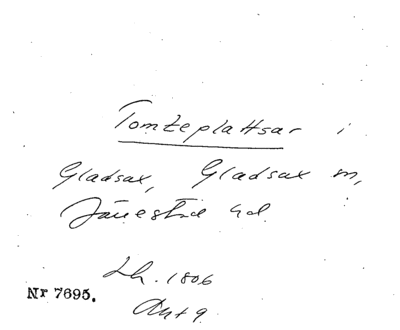 Tomteplattsar i
Gladsax, Gladsax sn,
Järrestad hd
Lh. 1806
Nr 7695.